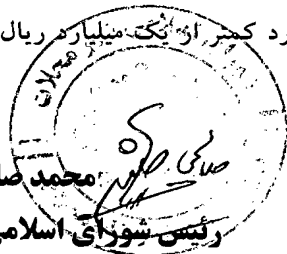 رد کمتر از یک میلیارد ریال
محلات
محمد صا
رئیس شورای اسلامی